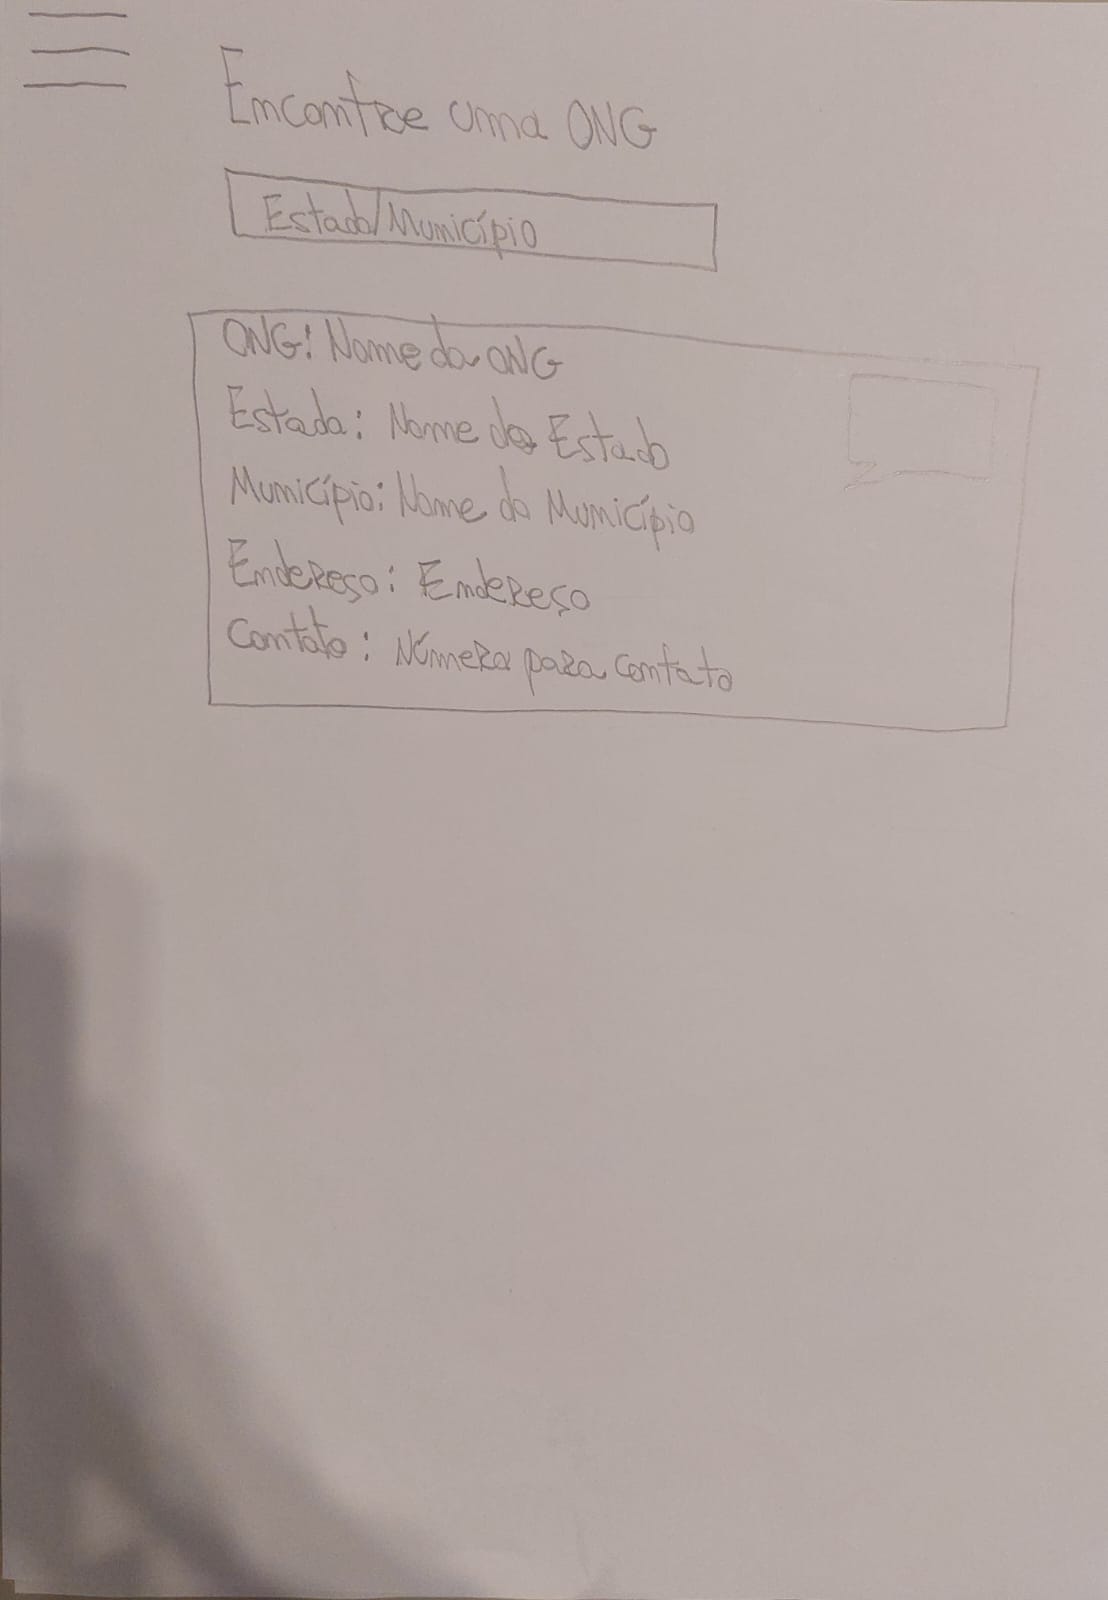 Encontre uma ONG
Estado/Município
ONG: Nome da ONG
Estado: Nome do Estado
Município: Nome do Município
Endereço: Endereço
Contato: Número para contato